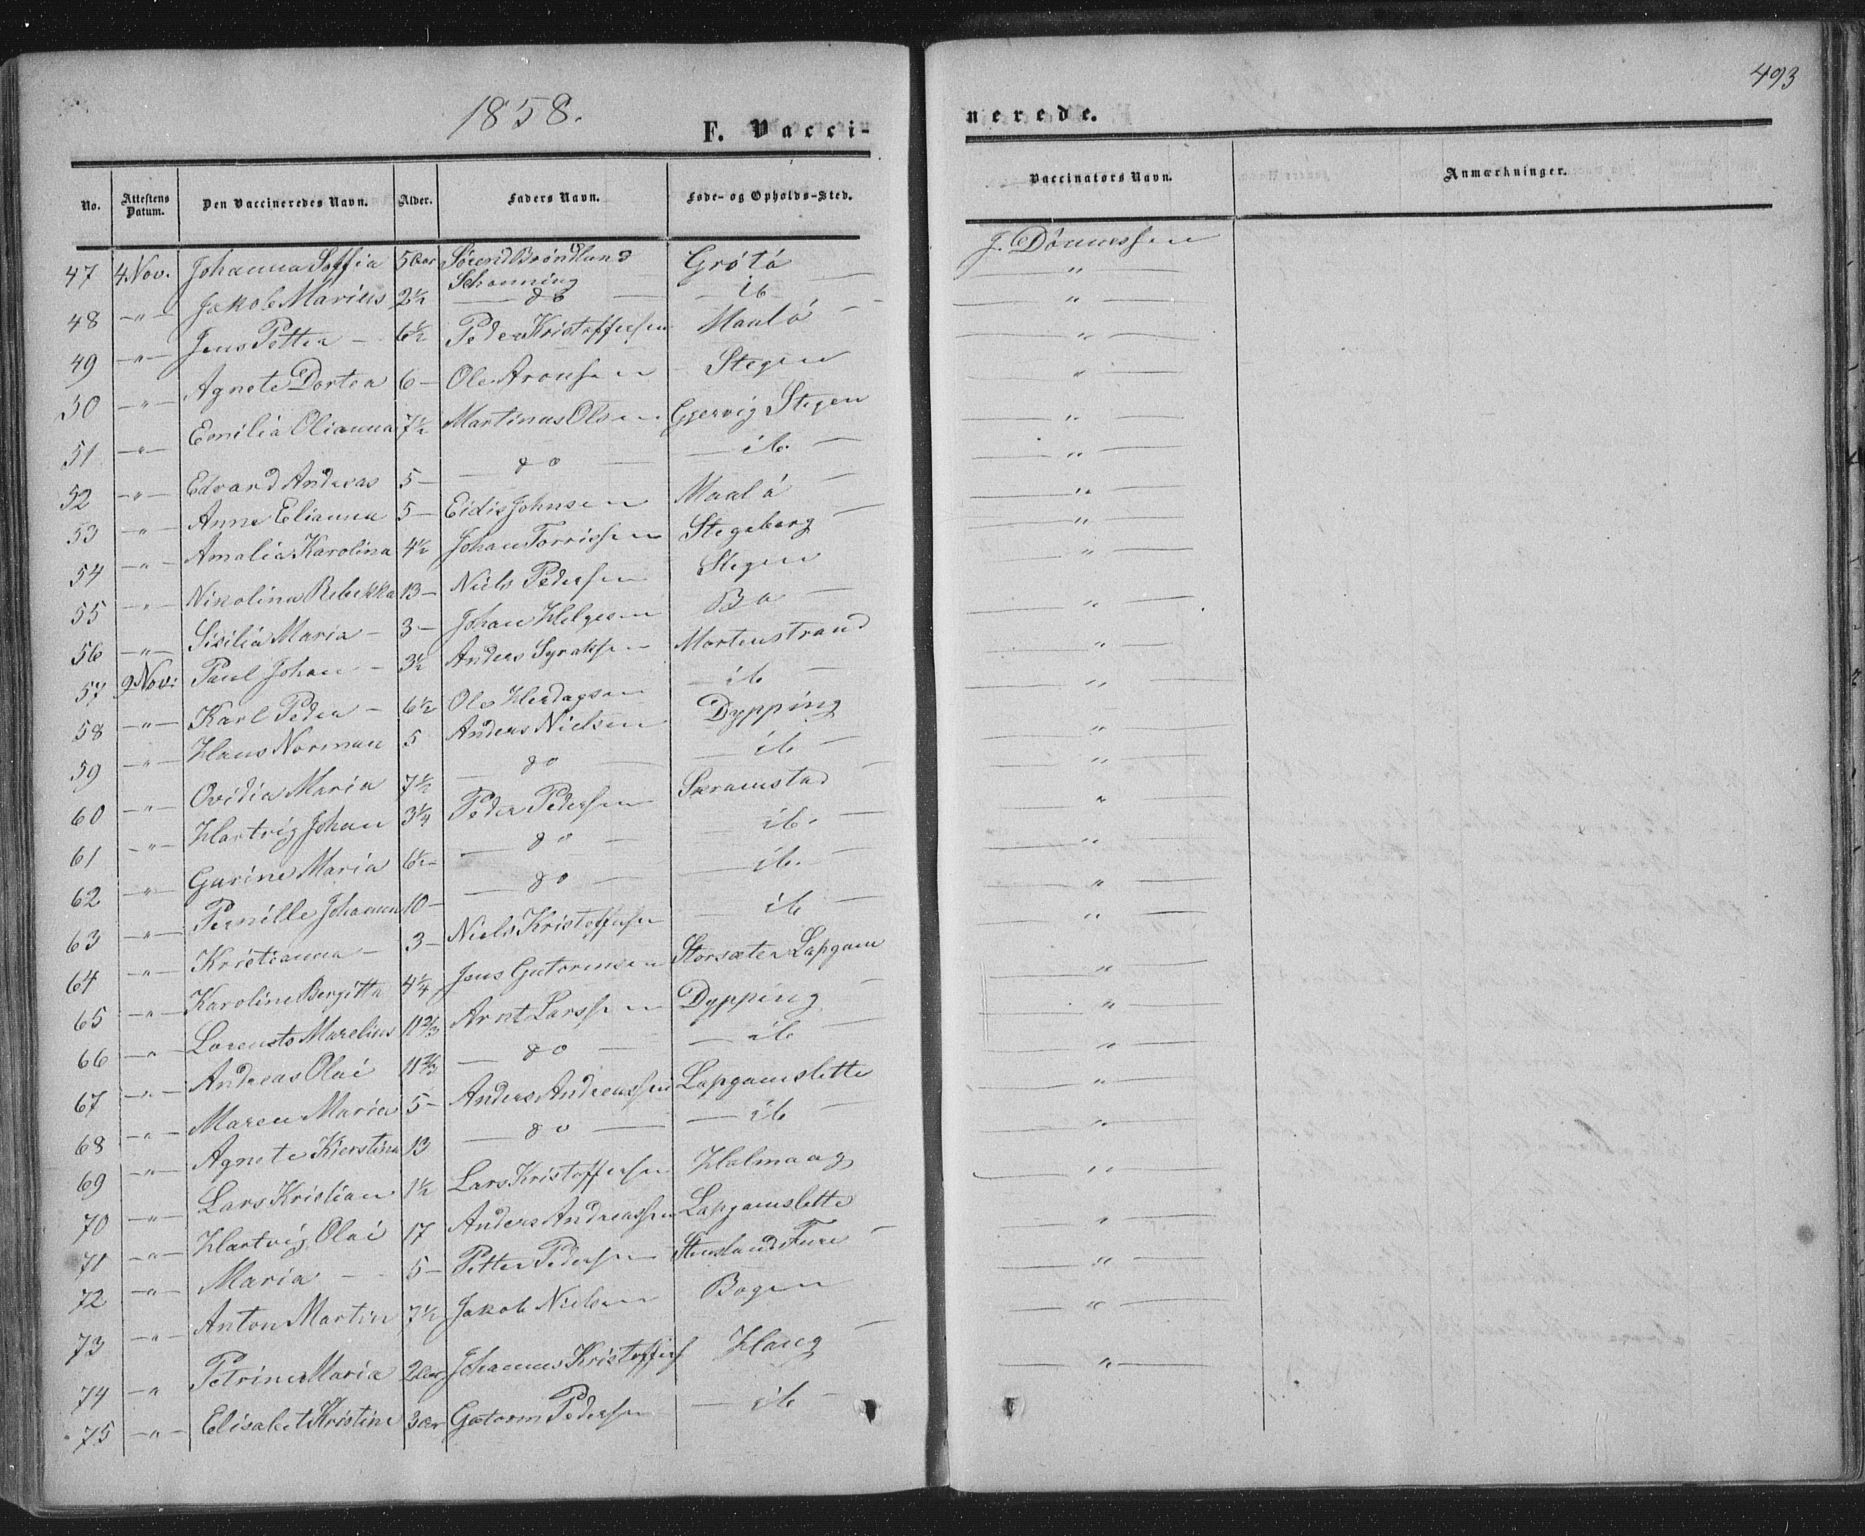 493
1858.
F. Vacci-
nerede.
No. Attestens Datum. Den Vaccineredes Navn. Alder. Faders Navn. Føde- og Opholds-Sted. Vaccinators Navn. Anmærkninger.
47 4 Nov. Johanna Soffia 5 aar Sørend Brøndlund Schonning Grøtø — J. Dønnessen
48 —"— Jakob Marius 2½ — do — — ib — — " —
49 —"— Jens Petter — 6½ Peder Kristoffersen Maalø — — " —
50 —"— Agnete Dortea 6 — Ole Aronsen Stegen — " —
51 —"— Emilia Olianna 7½ Martinus Olsen Gjervig Stegen — " —
52 —"— Edvard Andreas 5 — — do — — ib. — — " —
53 —"— Anne Elianna 5 — Eidis Johnsen Maalø — — " —
54 —"— Amalia Karolina 4½ Johan Torrissen Stegeberg — — " —
55 —"— Nikolina Rebekka 13 — Niels Pedersen Stegen — " —
56 —"— Sisilia Maria — 3 — Johan Helgesen Bø — — " —
57 9 Nov: Paul Johan — 3½ Anders Syraksen Martenstrand — " —
58 —"— Karl Peder — 6½ Ole Herdagsen — ib — — " —
59 —"— Hans Norman 5 Anders Nielsen Dypping — " —
60 —"— Ovidia Maria 7½ — do — — ib — — " —
61 —"— Hartvig Johan 3¼ Peder Pedersen Særamstad — " —
62 —"— Gurine Maria 6½ — — do — — ib. — — " —
63 —"— Pernille Johanna 10 — — do — — ib. — — " —
64 —"— Kristianna — 3 — Niels Kristoffersen — ib — — " —
65 —"— Karoline Bergitta 4¼ Jens Gutormsen Storsæter Lapgam — " —
66 —"— Lorents Marelius 11⅔ Arnt Larssen Dypping — — " —
67 —"— Andreas Olai 11⅔ — do — — ib — — " —
68 —"— Maren Maria 5 — Anders Andreassen Lapgamslette — " —
69 —"— Agnete Kierstina 13 — do — — ib — — " —
70 —"— Lars Kristian 1½ Lars Kristoffersen Holmaag — " —
71 —"— Hartvig Olai 17 Anders Andreassen Lapgamslette — " —
72 —"— Maria — 5 — Petter Pedersen Stenlands Fure — — " —
73 —"— Anton Martin 7½ Jakob Nielsen Bogen — " —
74 —"— Petrine Maria 2 aar Johannes Kristoffers Haug — — " —
75 —"— Elisabet Kristine 3 aar Gutorm Pedersen — ib —